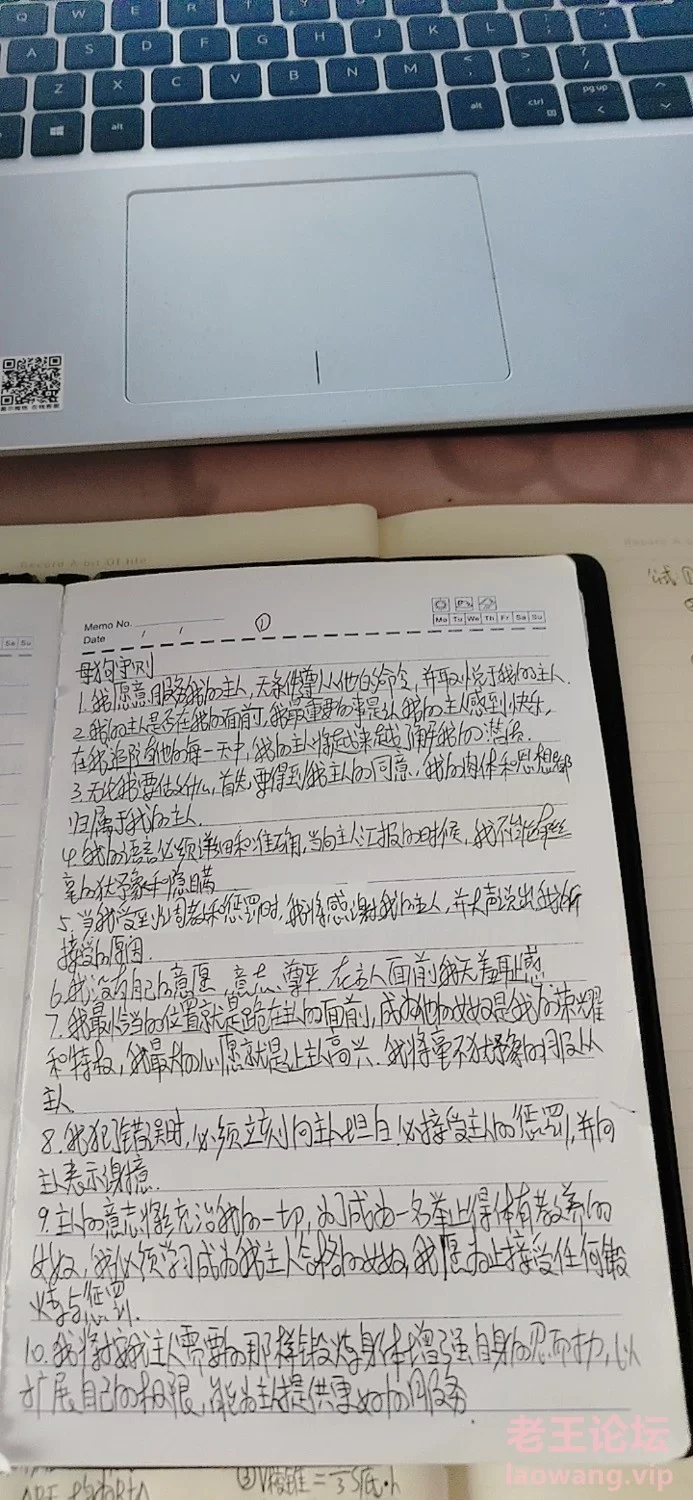 Q W E R T
A S D F G H J K L
Z X C V B N M < , > . ? /
alt alt ctrl pg up < ^
Record A bit Of life
Memo No.
Date / / ①
Mo Tu We Th Fr Sa Su
Sa Su
母狗守则
1.我愿意服务我的主人,无条件尊从他的命令,并取悦于我的主人.
2.我的主人是否在我的面前,我最重要的事是让我的主人感到快乐,
在我追随他的每一天中,我的主人将越来越了解我的
3.无论我要做什么,首先要得到我主人的同意,我的肉体和思想都
归属于我的主人.
4.我的语言必须详细和准确,当向主人汇报的时候,我不能有丝
毫的犹豫和隐瞒
5.当我受到调教和惩罚时,我将感谢我的主人,并大声说出我所
接受的原因.
6.我没有自己的意愿,意志,尊严,在主人面前我无羞耻感
7.我最恰当的位置就是跪在主人的面前,成为他的女奴是我的荣耀
和特权,我最大的心愿就是让主人高兴.我将毫不犹豫的服从
主人
8.我犯错误时,必须立刻向主人坦白,必接受主人的惩罚,并向
主人表示谢意.
9.主人的意志将统治我的一切,为了成为一名举止得体有教养的
女奴,我必须学习成为我主人合格的女奴,我愿为此接受任何锻
炼与惩罚.
10.我将按我主人需要的那样锻炼身体增强自身的忍耐力,以
扩展自己的极限,能为主人提供更好的服务.
②V棱锥=1/3S底·h
老王论坛
laowang.vip